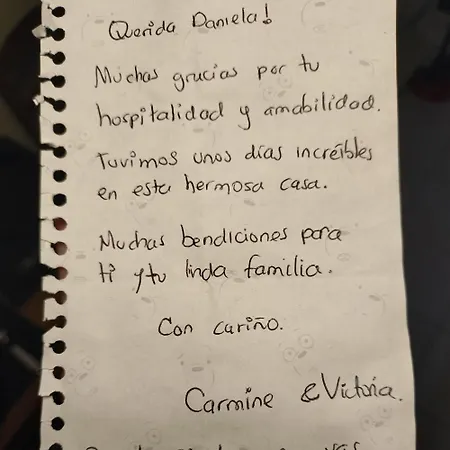 Querida Daniela!
Muchas gracias por tu
hospitalidad y amabilidad.
Tuvimos unos días increíbles
en esta hermosa casa.
Muchas bendiciones para
ti y tu linda familia.
Con cariño.
Carmine & Victoria.